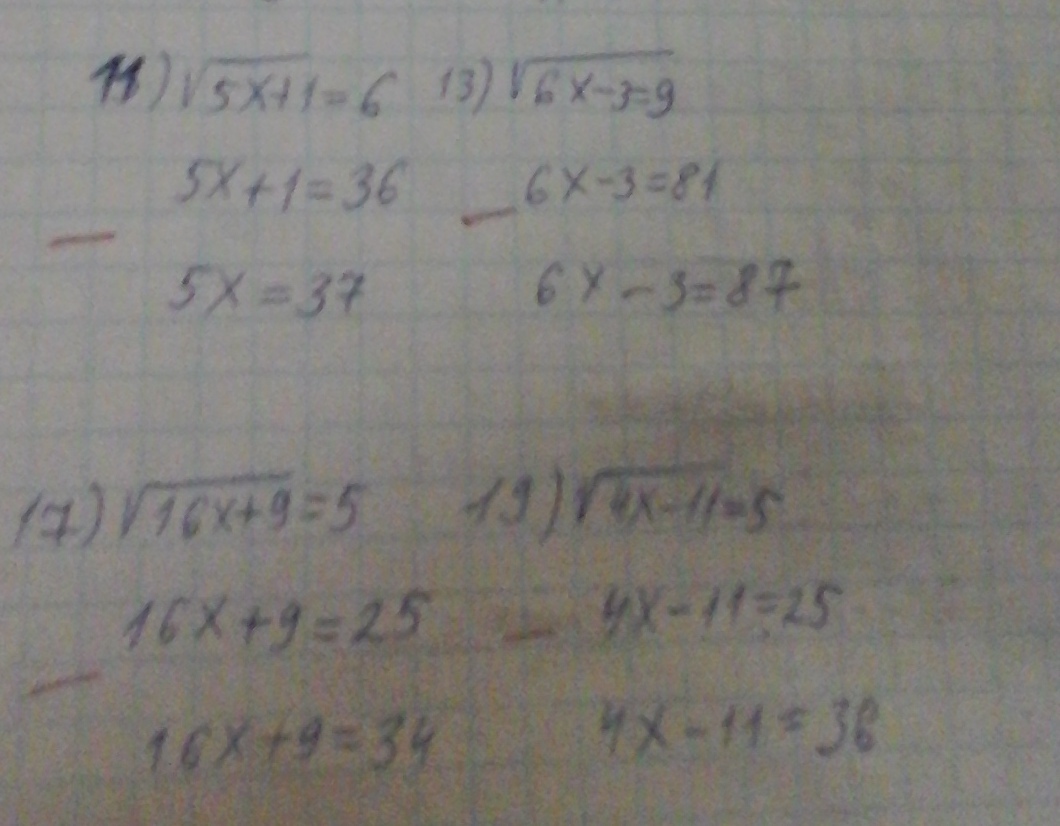 11) √5x+1=6
5x+1=36
5x=37
13) √6x-3=9
6x-3=81
6x-3=87
17) √16x+9=5
16x+9=25
16x+9=34
19) √4x-11=5
4x-11=25
4x-11=36